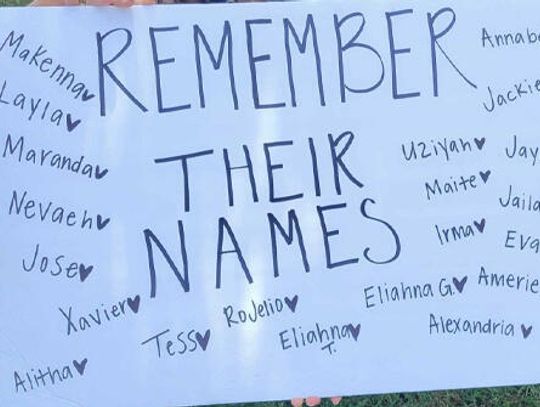 REMEMBER
THEIR
NAMES
Makenna♥
Layla♥
Maranda♥
Nevaeh♥
Jose♥
Xavier♥
Tess♥
Rojelio♥
Eliahna♥
T.
Alitha♥
Annab
Jackie
Uziyah♥
Jay
Maite♥
Jaila
Irma♥
Eva
Eliahna G.♥
Amerie
Alexandria♥